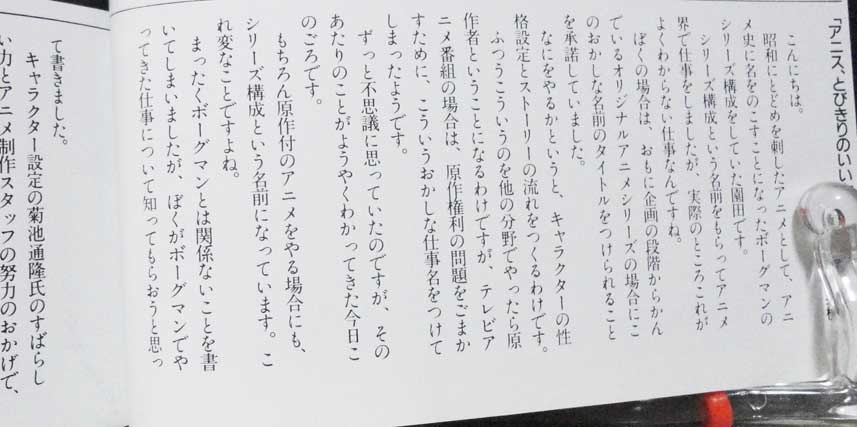 「アニス、とびきりのいい
こんにちは。
昭和にとどめを刺したアニメとして、アニ
メ史に名をのこすことになったボーグマンの
シリーズ構成をしていた園田です。
シリーズ構成という名前をもらってアニメ
界で仕事をしましたが、実際のところこれが
よくわからない仕事なんですね。
ぼくの場合は、おもに企画の段階からかん
でいるオリジナルアニメシリーズの場合にこ
のおかしな名前のタイトルをつけられること
を承諾していました。
なにをやるかというと、キャラクターの性
格設定とストーリーの流れをつくるわけです。
ふつうこういうのを他の分野でやったら原
作者ということになるわけですが、テレビア
ニメ番組の場合は、原作権利の問題をごまか
すために、こういうおかしな仕事名をつけて
しまったようです。
ずっと不思議に思っていたのですが、その
あたりのことがようやくわかってきた今日こ
のごろです。
もちろん原作付のアニメをやる場合にも、
シリーズ構成という名前になっています。こ
れ変なことですよね。
まったくボーグマンとは関係ないことを書
いてしまいましたが、ぼくがボーグマンでや
ってきた仕事について知ってもらおうと思っ
て書きました。
キャラクター設定の菊池通隆氏のすばらし
い力とアニメ制作スタッフの努力のおかげで、